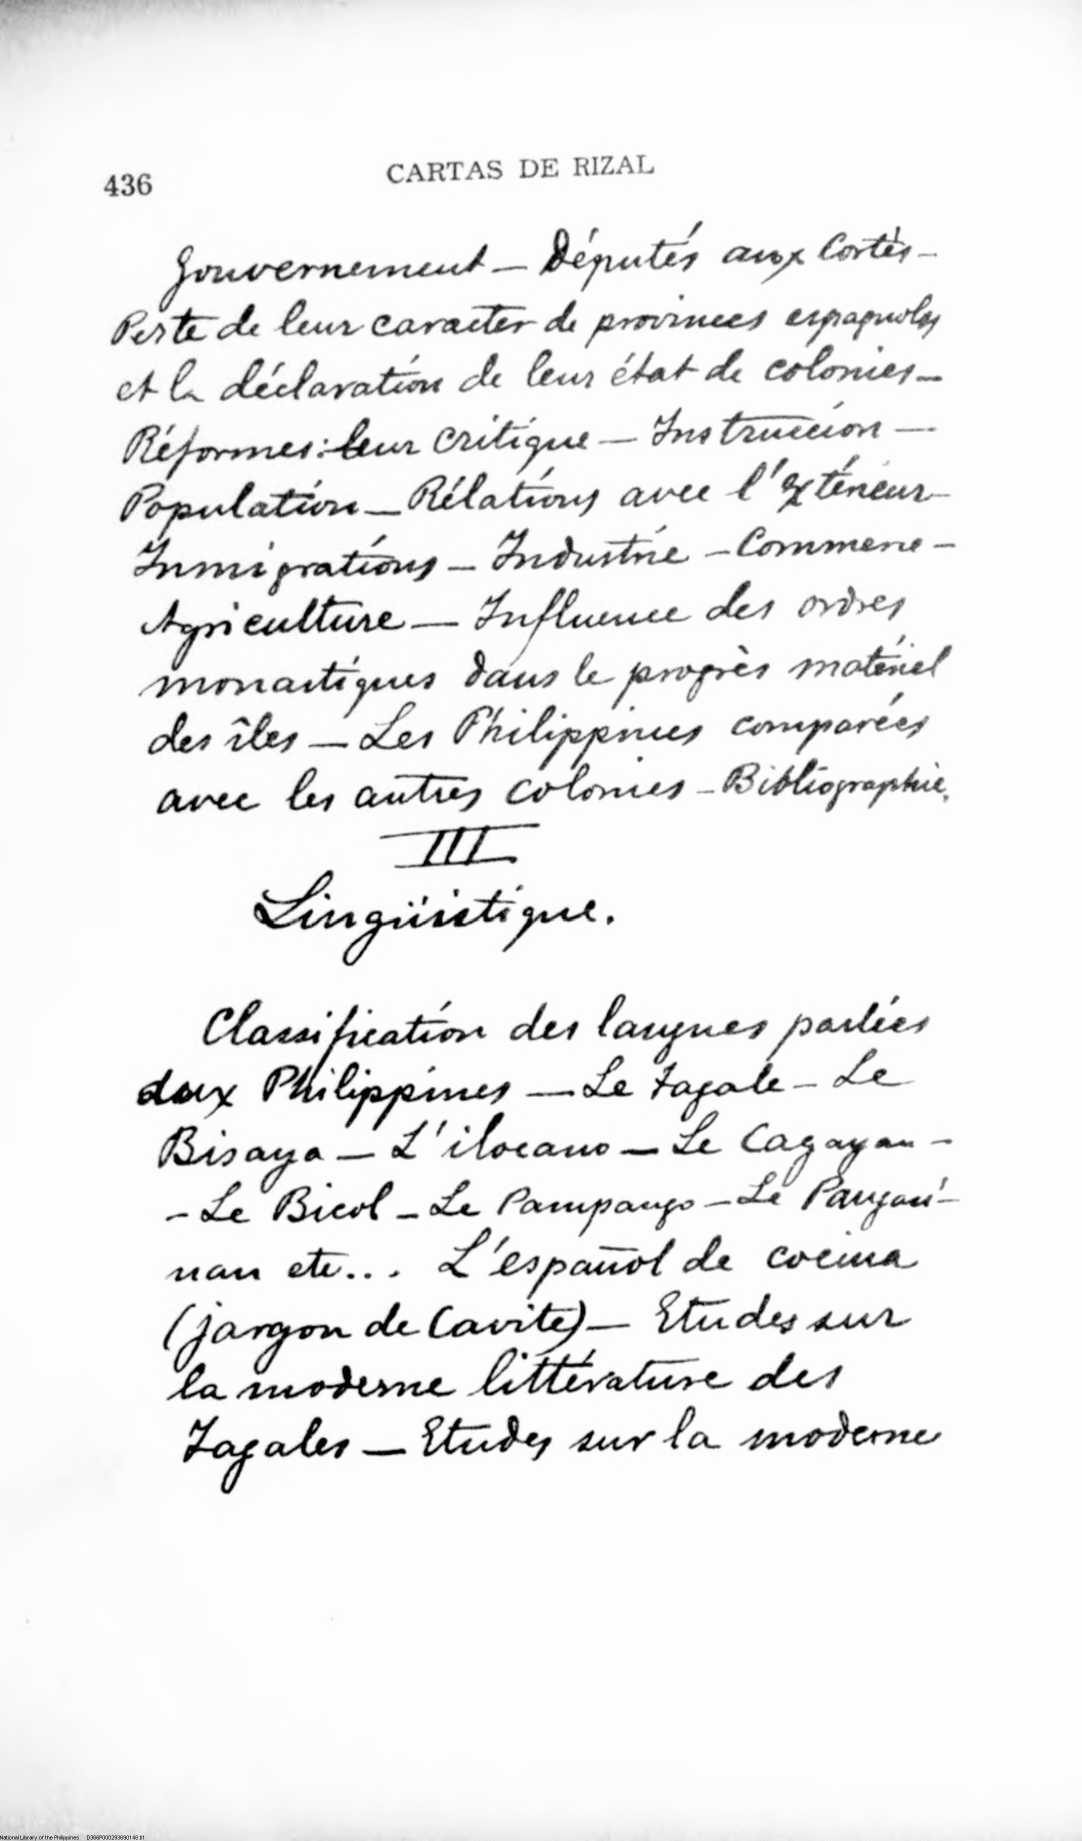 436
CARTAS DE RIZAL
Gouvernement — Députés aux Cortès —
Perte de leur caracter de provinces espagnoles
et la déclaration de leur état de colonies —
Réformes: leur critique — Instruccion —
Population — Rélations avec l'extérieur —
Inmigrations — Industrie — Commerce —
Agriculture — Influence des ordres
monastiques dans le progrès matériel
des îles — Les Philippines comparées
avec les autres colonies — Bibliographie.
III
Lingüistique.
Classification des langues parlées
aux Philippines — Le tagale — Le
Bisaya — L'ilocano — Le Cagayan —
— Le Bicol — Le Pampango — Le Pangasi-
nan etc... L'español de cocina
(jargon de Cavite) — Etudes sur
la moderne littérature des
Tagales — Etudes sur la moderne
National Library of the Philippines